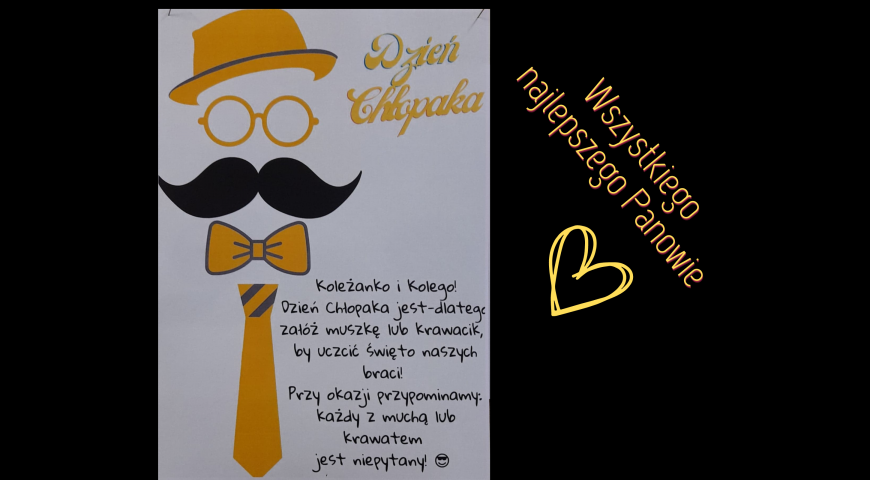 Dzień
Chłopaka
Koleżanko i Kolego!
Dzień Chłopaka jest-dlatego
załóż muszkę lub krawacik,
by uczcić święto naszych
braci!
Przy okazji przypominamy:
każdy z muchą lub
krawatem
jest niepytany! 😎
Wszystkiego
najlepszego Panowie